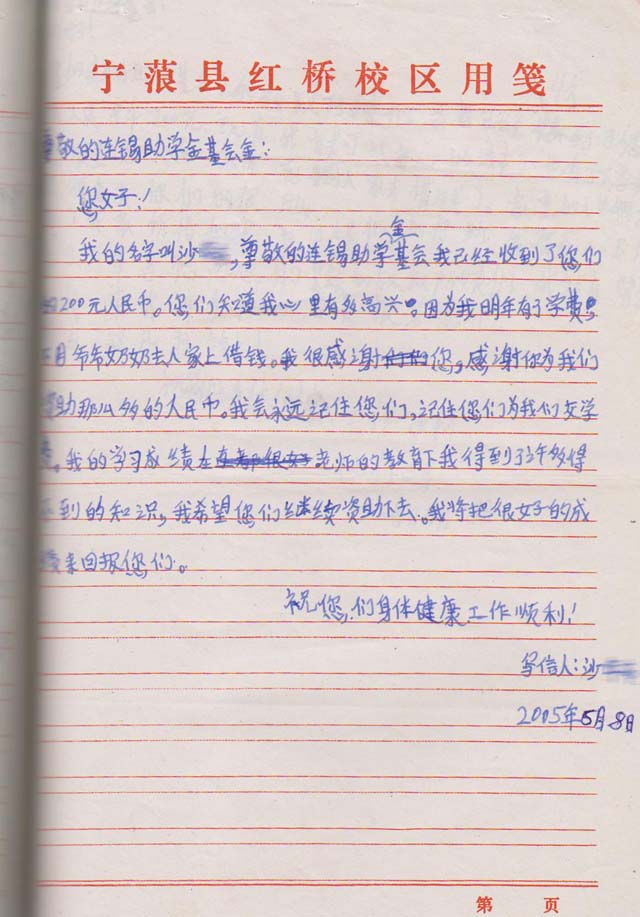 宁蒗县红桥校区用笺
尊敬的连锡助学金基会金：
您女子！
我的名字叫沙，尊敬的连锡助学金基会我己经收到了您们
200元人民巾。您们知道我心里有多高兴。因为我明年有了学费
月爷爷奶奶去人家上借钱。我很感谢您，感谢你为我们
助那么多的人民巾。我会永远记住您们，记住您们为我们交学
。我的学习成绩在老师的教育下我得到了许多得
到的知识，我希望您们继续资助下去。我将把很女子的成
来回报您们。
祝您们身体健康工作顺利！
写信人：沙
2005年5月8日
第 页